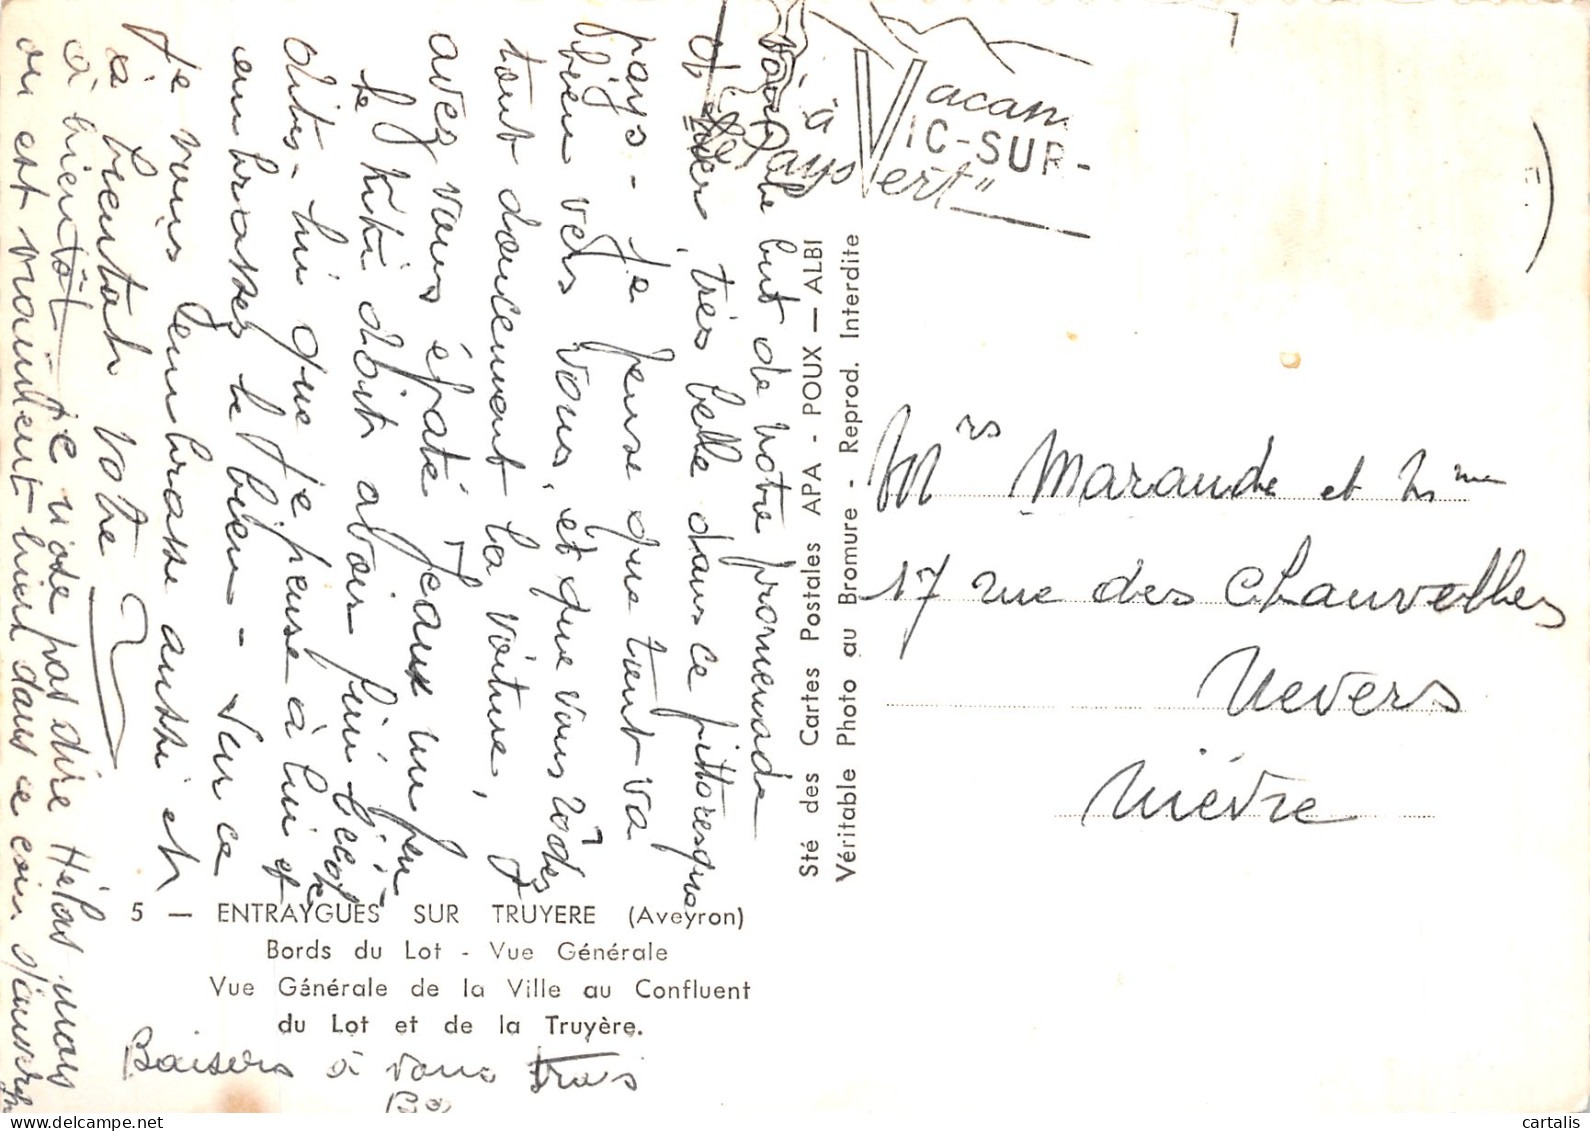 Vacan
à VIC-SUR-
"le Pays Vert"
Voici le but de notre promenade
d'hier, très belle dans ce pittoresque
pays - Je pense que tout va
bien vers vous, et que vous rôdez
tout doucement la voiture,
avez vous épaté Jean un peu
le Kiki doit avoir fini l'école
dites-lui que je pense à lui et
embrassez le bien - Sur ce
je vous embrasse aussi et
à bientôt votre
à bientôt je n'ose pas dire Hélas mais
on est vraiment bien dans ce coin
Baisers à vous trois
5 — ENTRAYGUES SUR TRUYERE (Aveyron)
Bords du Lot - Vue Générale
Vue Générale de la Ville au Confluent
du Lot et de la Truyère.
Sté des Cartes Postales APA - POUX — ALBI
Véritable Photo au Bromure - Reprod. Interdite
Mrs Marande et Mme
17 rue des Chauvelles
Nevers
Nièvre
cartalis